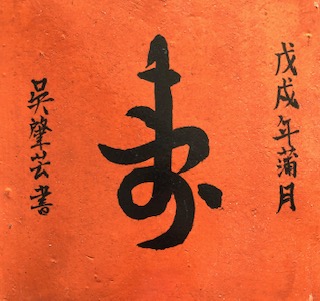 戊戌年蒲月
寿
吳肇芸書